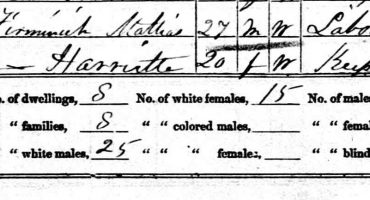 Mattias 27 m W Labo
— Harriette 20 f W Keep
No. of dwellings, 8 No. of white females, 15 No. of males
" families, 8 " colored males, " fema
" white males, 25 " " females, " blind